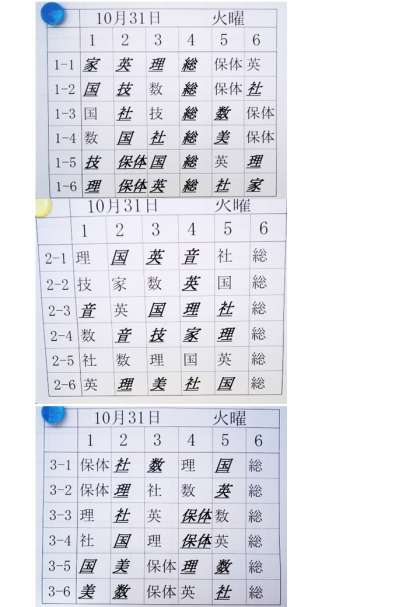 10月31日 火曜
1 2 3 4 5 6
1-1 家 英 理 総 保体 英
1-2 国 技 数 総 保体 社
1-3 国 社 技 総 数 保体
1-4 数 国 社 総 美 保体
1-5 技 保体 国 総 英 理
1-6 理 保体 英 総 社 家
10月31日 火曜
1 2 3 4 5 6
2-1 理 国 英 音 社 総
2-2 技 家 数 英 国 総
2-3 音 英 国 理 社 総
2-4 数 音 技 家 理 総
2-5 社 数 理 国 英 総
2-6 英 理 美 社 国 総
10月31日 火曜
1 2 3 4 5 6
3-1 保体 社 数 理 国 総
3-2 保体 理 社 数 英 総
3-3 理 社 英 保体 数 総
3-4 社 国 理 保体 英 総
3-5 国 美 保体 理 数 総
3-6 美 数 保体 英 社 総